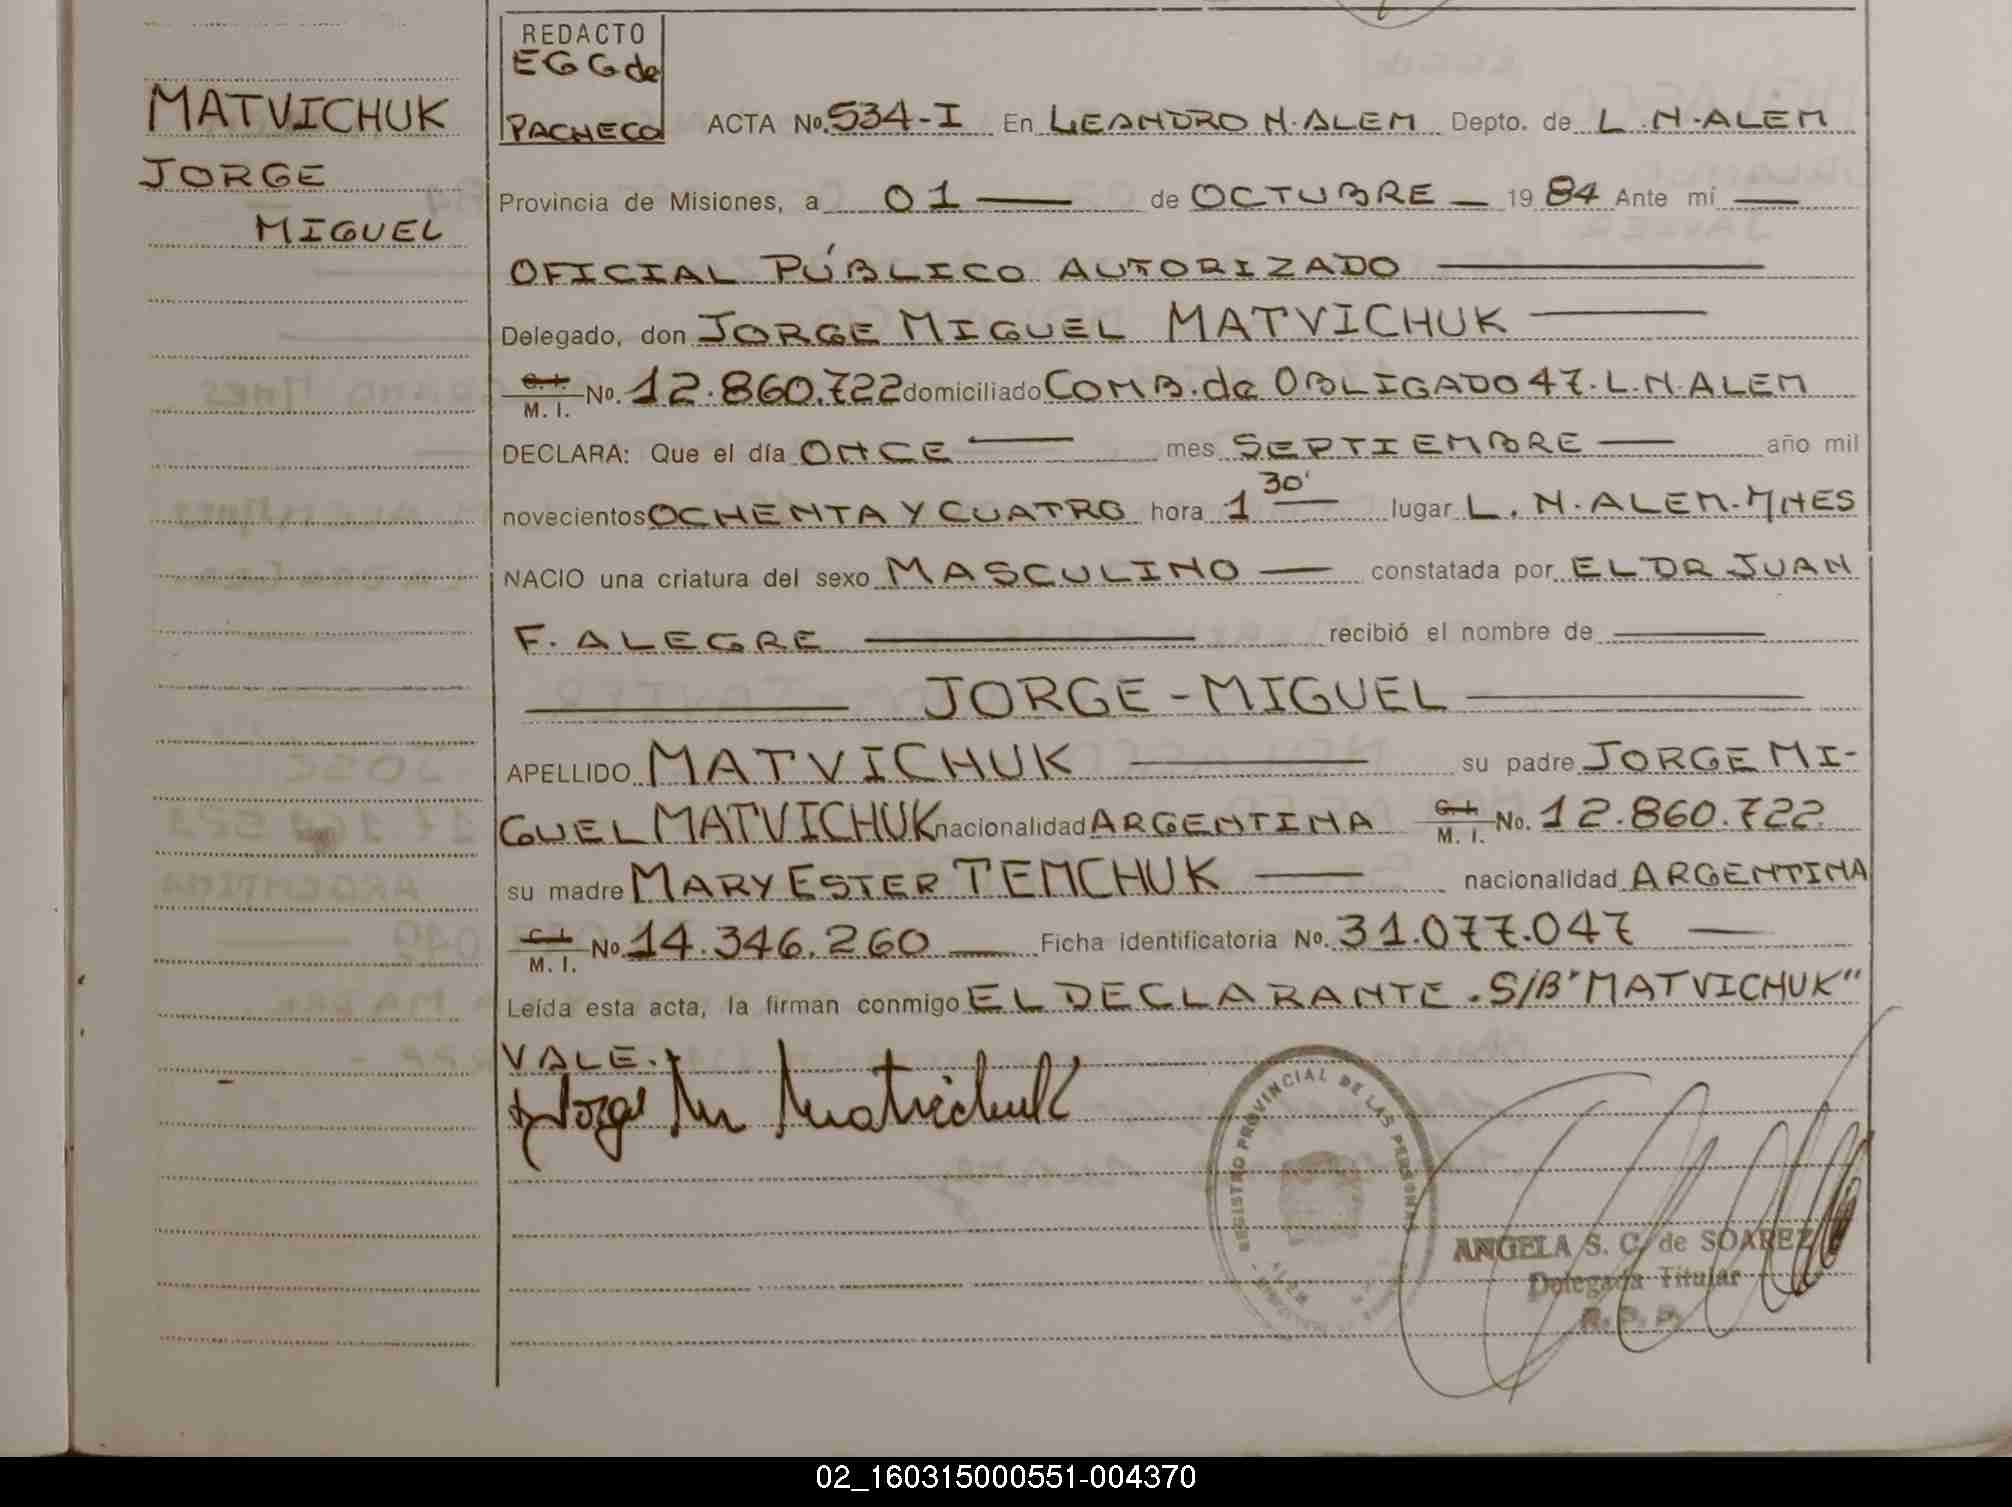 REDACTO
EGG de
PACHECO
MATVICHUK
JORGE
MIGUEL
ACTA No. 534-I En LEANDRO N. ALEM Depto. de L. N. ALEM
Provincia de Misiones, a 01 — de OCTUBRE — 1984 Ante mí —
OFICIAL PÚBLICO AUTORIZADO —
Delegado, don JORGE MIGUEL MATVICHUK —
C. I. M. I. No. 12.860.722 domiciliado COMB. de OBLIGADO 47. L. N. ALEM
DECLARA: Que el día ONCE — mes SEPTIEMBRE — año mil
novecientos OCHENTA Y CUATRO hora 1 30' lugar L. N. ALEM. MNES
NACIO una criatura del sexo MASCULINO — constatada por EL DR JUAN
F. ALEGRE — recibió el nombre de —
— JORGE - MIGUEL —
APELLIDO MATVICHUK — su padre JORGE MI-
GUEL MATVICHUK nacionalidad ARGENTINA C. I. M. I. No. 12.860.722
su madre MARY ESTER TEMCHUK — nacionalidad ARGENTINA
C. I. M. I. No. 14.346.260 — Ficha identificatoria No. 31.077.047 —
Leída esta acta, la firman conmigo EL DECLARANTE. S/B "MATVICHUK"
VALE.
Jorge M Matvichuk
REGISTRO PROVINCIAL DE LAS PERSONAS
ANGELA S. C. de SOAREZ
Delegada Titular
R. P. P.
02_160315000551-004370